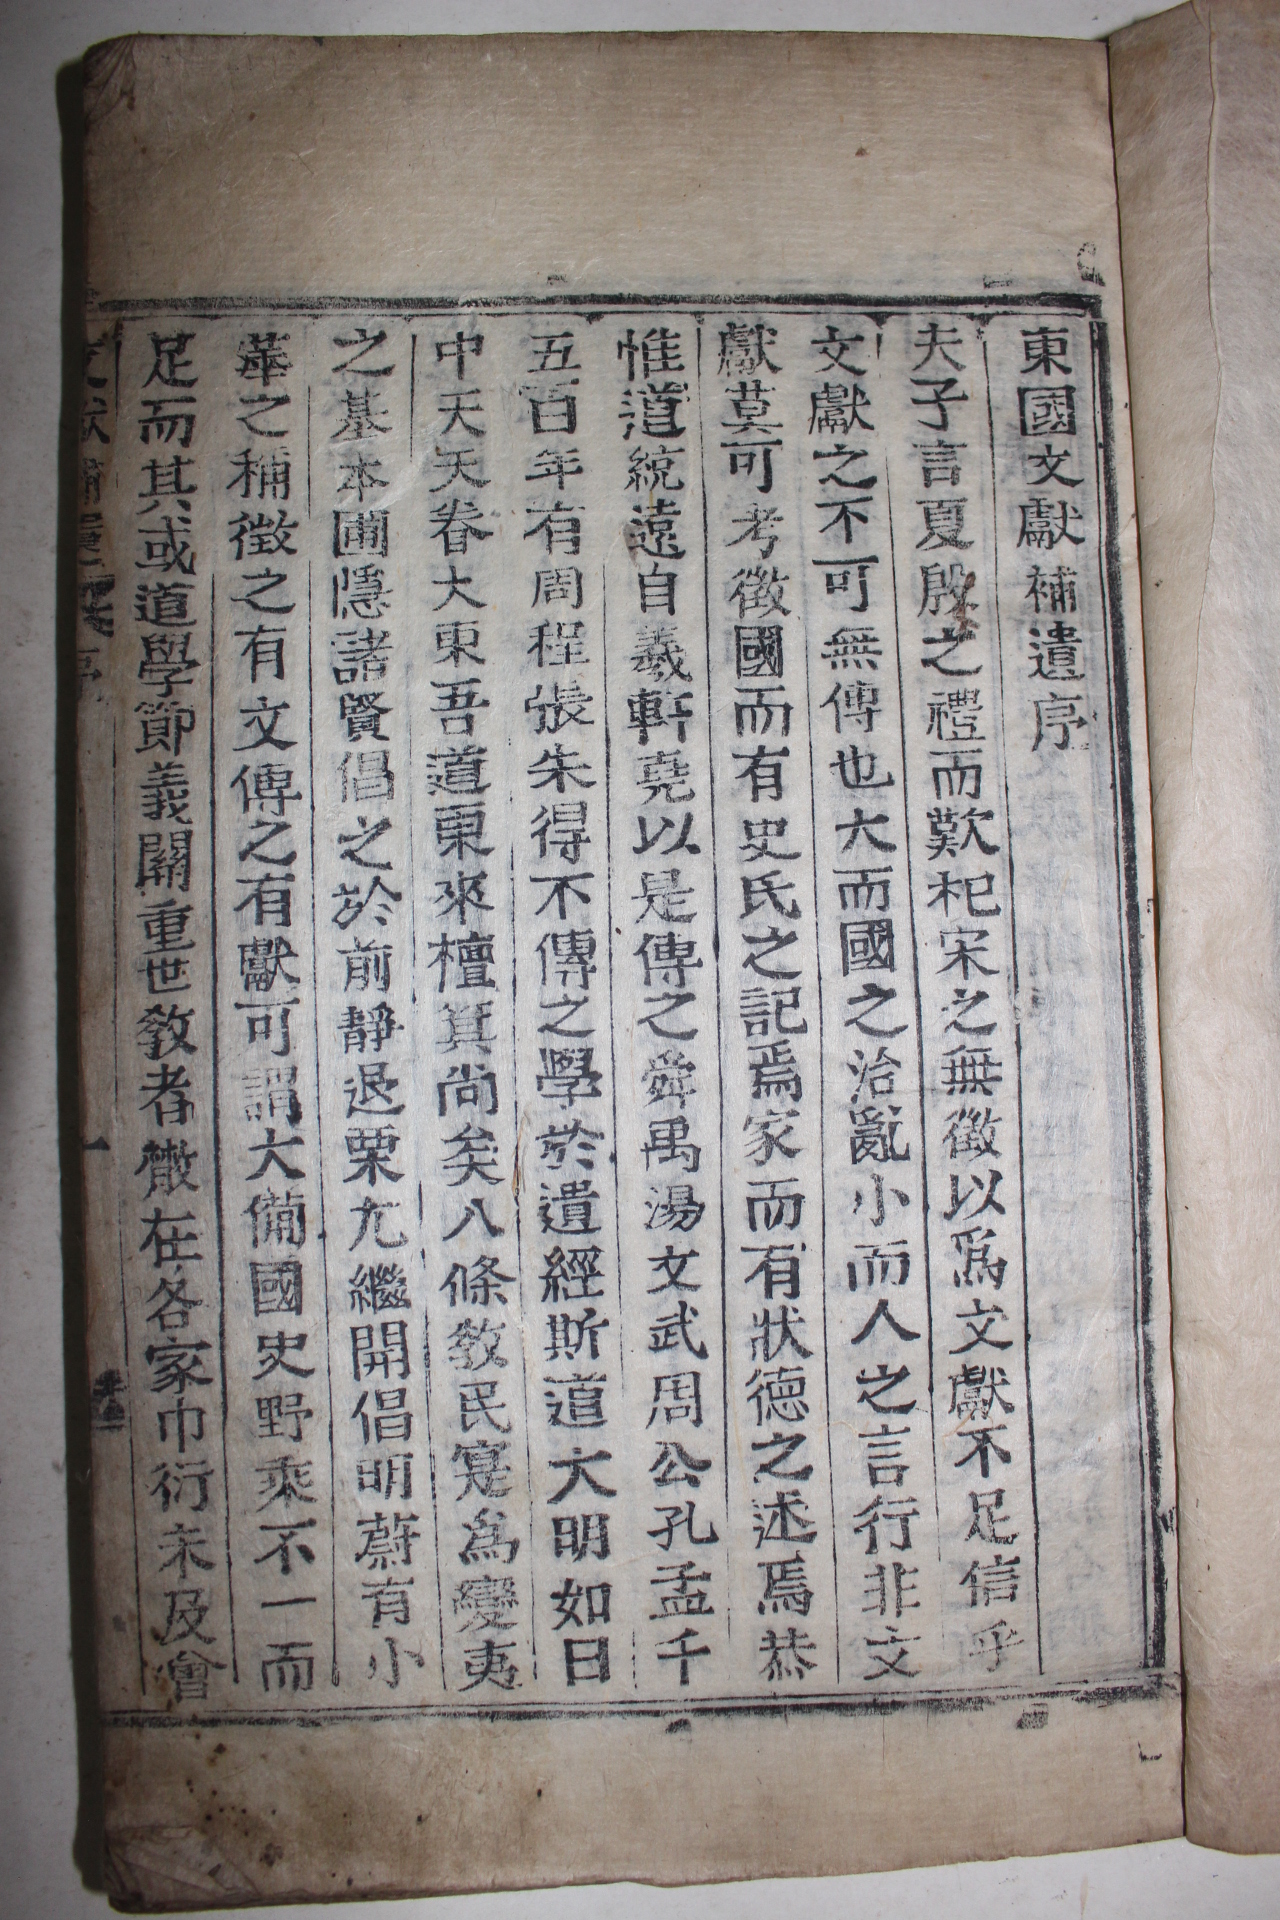 東國文獻補遺序
夫子言夏殷之禮而歎杞宋之無徵以爲文獻不足信乎
文獻之不可無傳也大而國之治亂小而人之言行非文
獻莫可考徵國而有史氏之記焉家而有狀德之述焉恭
惟道統遠自羲軒堯以是傳之舜禹湯文武周公孔孟千
五百年有周程張朱得不傳之學於遺經斯道大明如日
中天天眷大東吾道東來檀箕尚矣八條敎民寔爲變夷
之基本圃隱諸賢倡之於前靜退栗尤繼開倡明蔚有小
華之稱徵之有文傳之有獻可謂大備國史野乘不一而
足而其或道學節義關重世敎者散在各家巾衍未及會
文獻補遺 序 一